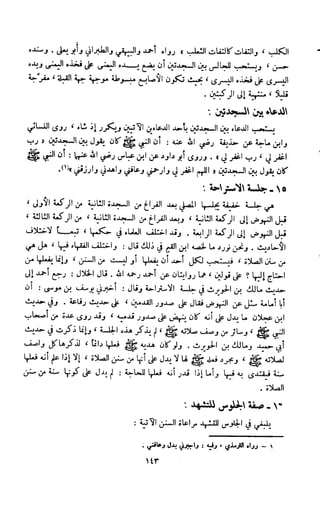 الكلب ، والتفات كالتفات الثعلب » رواه أحمد والبيهقي والطبراني وأبو يعلى . وسنده
حسن ، ويستحب للجالس بين السجدتين أن يضع يده اليمنى على فخذه اليمنى ويده
اليسرى على فخذه اليسرى ، بحيث تكون الأصابع مبسوطة موجهة جهة القبلة ، مفرجة
قليلا ، منتهية إلى الركبتين .
الدعاء بين السجدتين :
يستحب الدعاء بين السجدتين بأحد الدعاءين الآتيين ويكرر إذا شاء ، روى النسائي
وابن ماجة عن حذيفة رضي الله عنه : أن النبي ﷺ كان يقول بين السجدتين « رب
اغفر لي ، رب اغفر لي » . وروى أبو داود عن ابن عباس رضي الله عنهما : أن النبي ﷺ
كان يقول بين السجدتين « اللهم اغفر لي وارحمني وعافني واهدني وارزقني »(١).
١٥ - جلسة الاستراحة :
هي جلسة خفيفة يجلسها المصلي بعد الفراغ من السجدة الثانية من الركعة الأولى ،
قبل النهوض إلى الركعة الثانية ، وبعد الفراغ من السجدة الثانية ، من الركعة الثالثة ،
قبل النهوض إلى الركعة الرابعة . وقد اختلف العلماء في حكمها ، تبعا لاختلاف
الأحاديث . ونحن نورد ما لخصه ابن القيم في ذلك قال : واختلف الفقهاء فيها ، هل هي
من سنن الصلاة ، فيستحب لكل أحد أن يفعلها أو ليست من السنن ، وإنما يفعلها من
احتاج إليها ؟ على قولين ، هما روايتان عن أحمد رحمه الله . قال الخلال : رجع أحمد إلى
حديث مالك بن الحويرث في جلسة الاستراحة وقال : أخبرني يوسف بن موسى : أن
أبا أمامة سئل عن النهوض فقال على صدور القدمين ، على حديث رفاعة . وفي حديث
ابن عجلان ما يدل على أنه كان ينهض على صدور قدميه ، وقد روى عدة من أصحاب
النبي ﷺ ، وسائر من وصف صلاته ﷺ ، لم يذكر هذه الجلسة ، وإنما ذكرت في حديث
أبي حميد ومالك بن الحويرث . ولو كان هديه ﷺ فعلها دائما ، لذكرها كل واصف
لصلاته ﷺ ، ومجرد فعله ﷺ لها لا يدل على أنها من سنن الصلاة ، إلا إذا علم أنه فعلها
سنة فيقتدى به فيها وأما إذا قدر أنه فعلها للحاجة : لم يدل على كونها سنة من سنن
الصلاة .
١٦ - صفة الجلوس للتشهد :
ينبغي في الجلوس للتشهد مراعاة السنن الآتية :
١ - رواه الترمذي ، وفيه : واجبرني بدل وعافني .
١٤٣